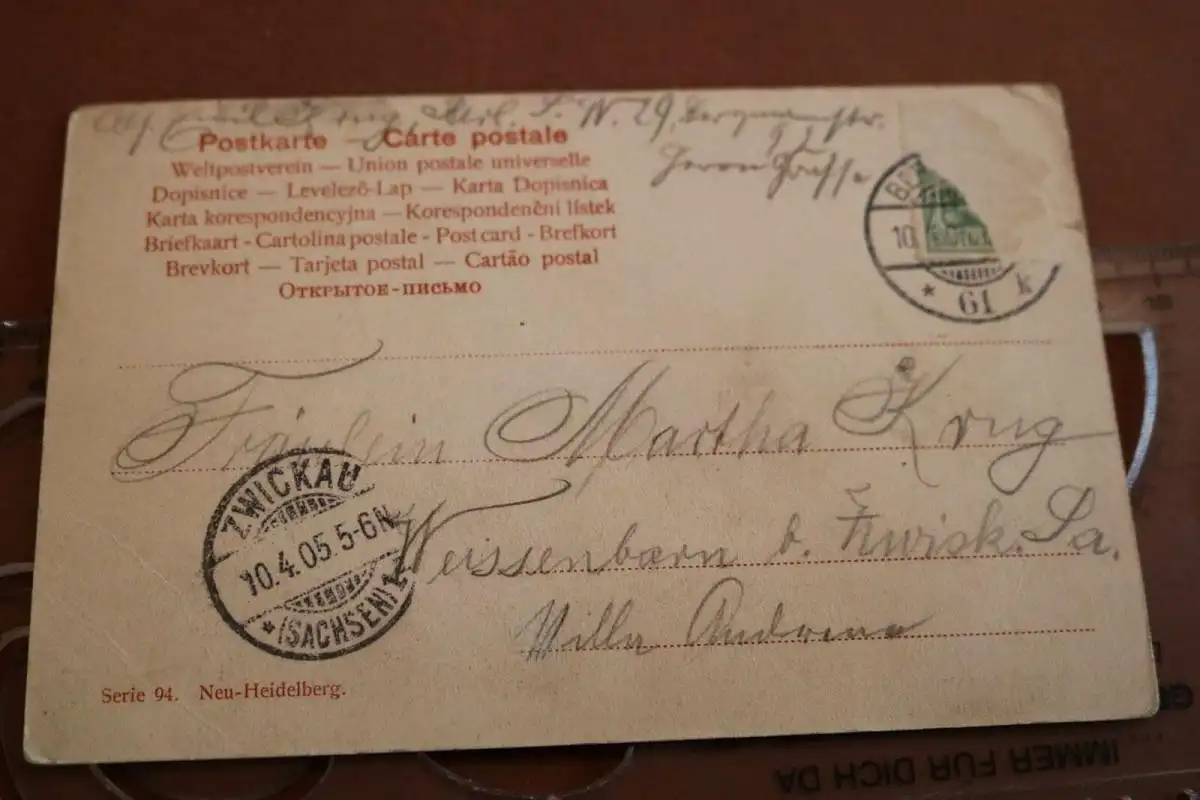 Emil Krug, Berl. S. N. 29, Bergmannstr.
Postkarte — Carte postale
Weltpostverein — Union postale universelle
Dopisnice — Levelező-Lap — Karta Dopisnica
Karta korespondencyjna — Korespondenční lístek
Briefkaart - Cartolina postale - Post card - Brefkort
Brevkort — Tarjeta postal — Cartão postal
Открытое-письмо
10.
* 61 k
Fräulein Martha Krug
Weissenborn b. Zwick. Sa.
Villa
ZWICKAU
10.4.05.5-6N
* (SACHSEN) 1.
Serie 94. Neu-Heidelberg.
IMMER FÜR DICH DA